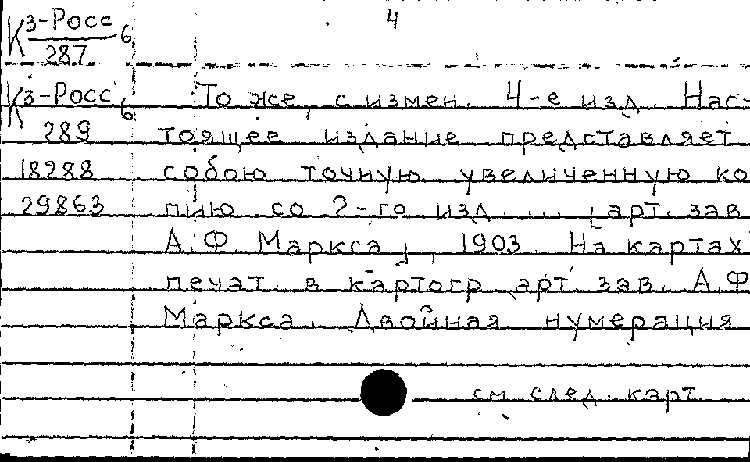 4
К 3-Росс 6
287
К 3-Росс 6 То же, с измен. 4-е изд. Нас-
289 тоящее издание представляет
18288 собою точную увеличенную ко
29863 пию со 2-го изд. ... [арт. зав
А.Ф. Маркса], 1903. На картах
печат. в картогр. арт. зав. А.Ф
Маркса. Двойная нумерация
см. след. карт.